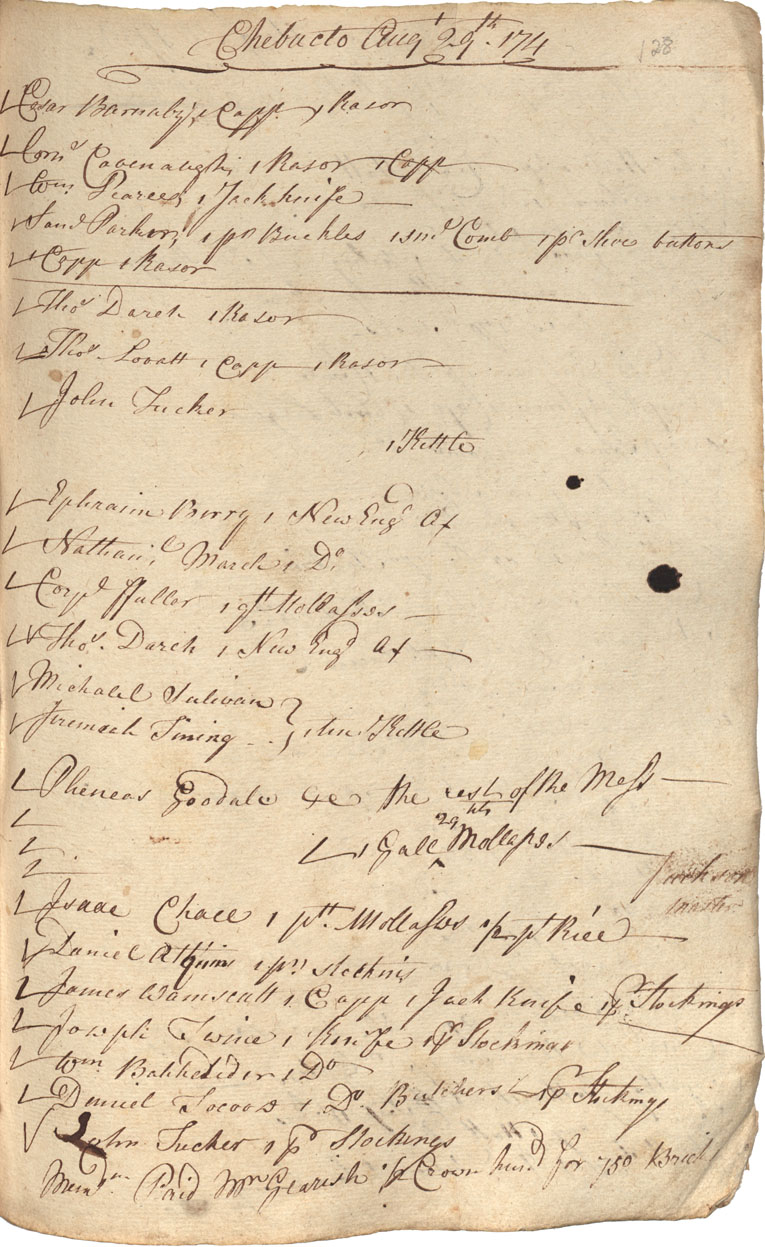 Chebucto Augt 29th. 174
128
Cesar Barnaby, 1 Capp. 1 Rasor
Corns Cavenaugh, 1 Rasor 1 Capp
Wm. Pearce, 1 Jack knife
Saml Parker, 1 pr Buckles 1 smd Comb 1 pr Sleve buttons
1 Capp 1 Rasor
Thos Darch 1 Rasor
Thos. Lovatt 1 Capp 1 Rasor
John Tucker
1 Kettle
Ephraim Berry 1 New Engd Ax
Nathanl. March 1 Do.
Corpl ffuller 1 qtt Mollasses
Thos. Darch 1 New Engd Ax
Michalel Sulivan
Jeremiah Tining } 1 tin Kettle
Pheneas Goodale &c the rest of the Mess
29ths
1 Gall ^ Mollasses
Jackson
master
Isaac Chace 1 ptt. Mollasses 1/2 pt Rice
Daniel Atkins 1 pr. stockins
James Wamscutt 1 Capp 1 Jack Knife 1 pr Stockings
Joseph Twine 1 Knife 1 pr Stockings
Wm Batchelder 1 Do
Daniel 1 Do Butchers 1 pr Stockings
John Tucker 1 pr Stockings
Memdm Paid Mr Gearish 1/2 Crown hund for 750 Brick